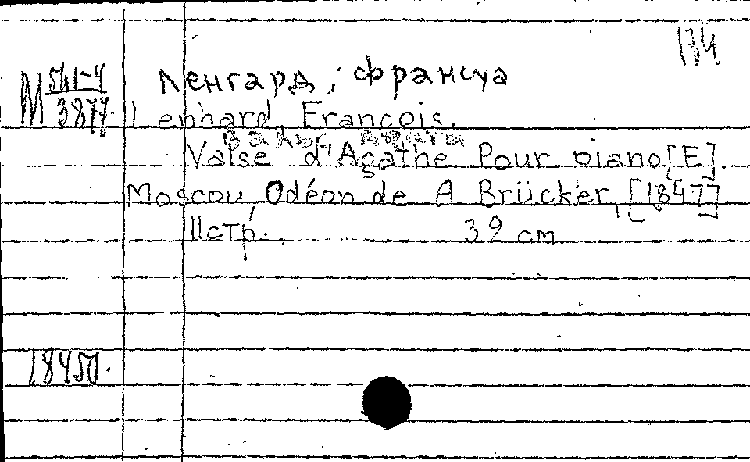 134
М 541-4
3877
Ленгард, Франсуа
Lenhard, François.
Вальс Агата
Valse d'Agathe Pour piano [E].
Moscou, Odéon de A Brücker, [1847]
11 стр. 32 см
18450.